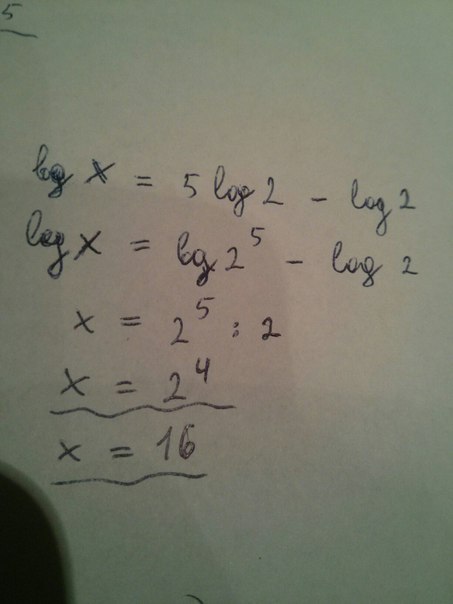 5
log x = 5 log 2 - log 2
log x = log 2⁵ - log 2
x = 2⁵ : 2
x = 2⁴
x = 16